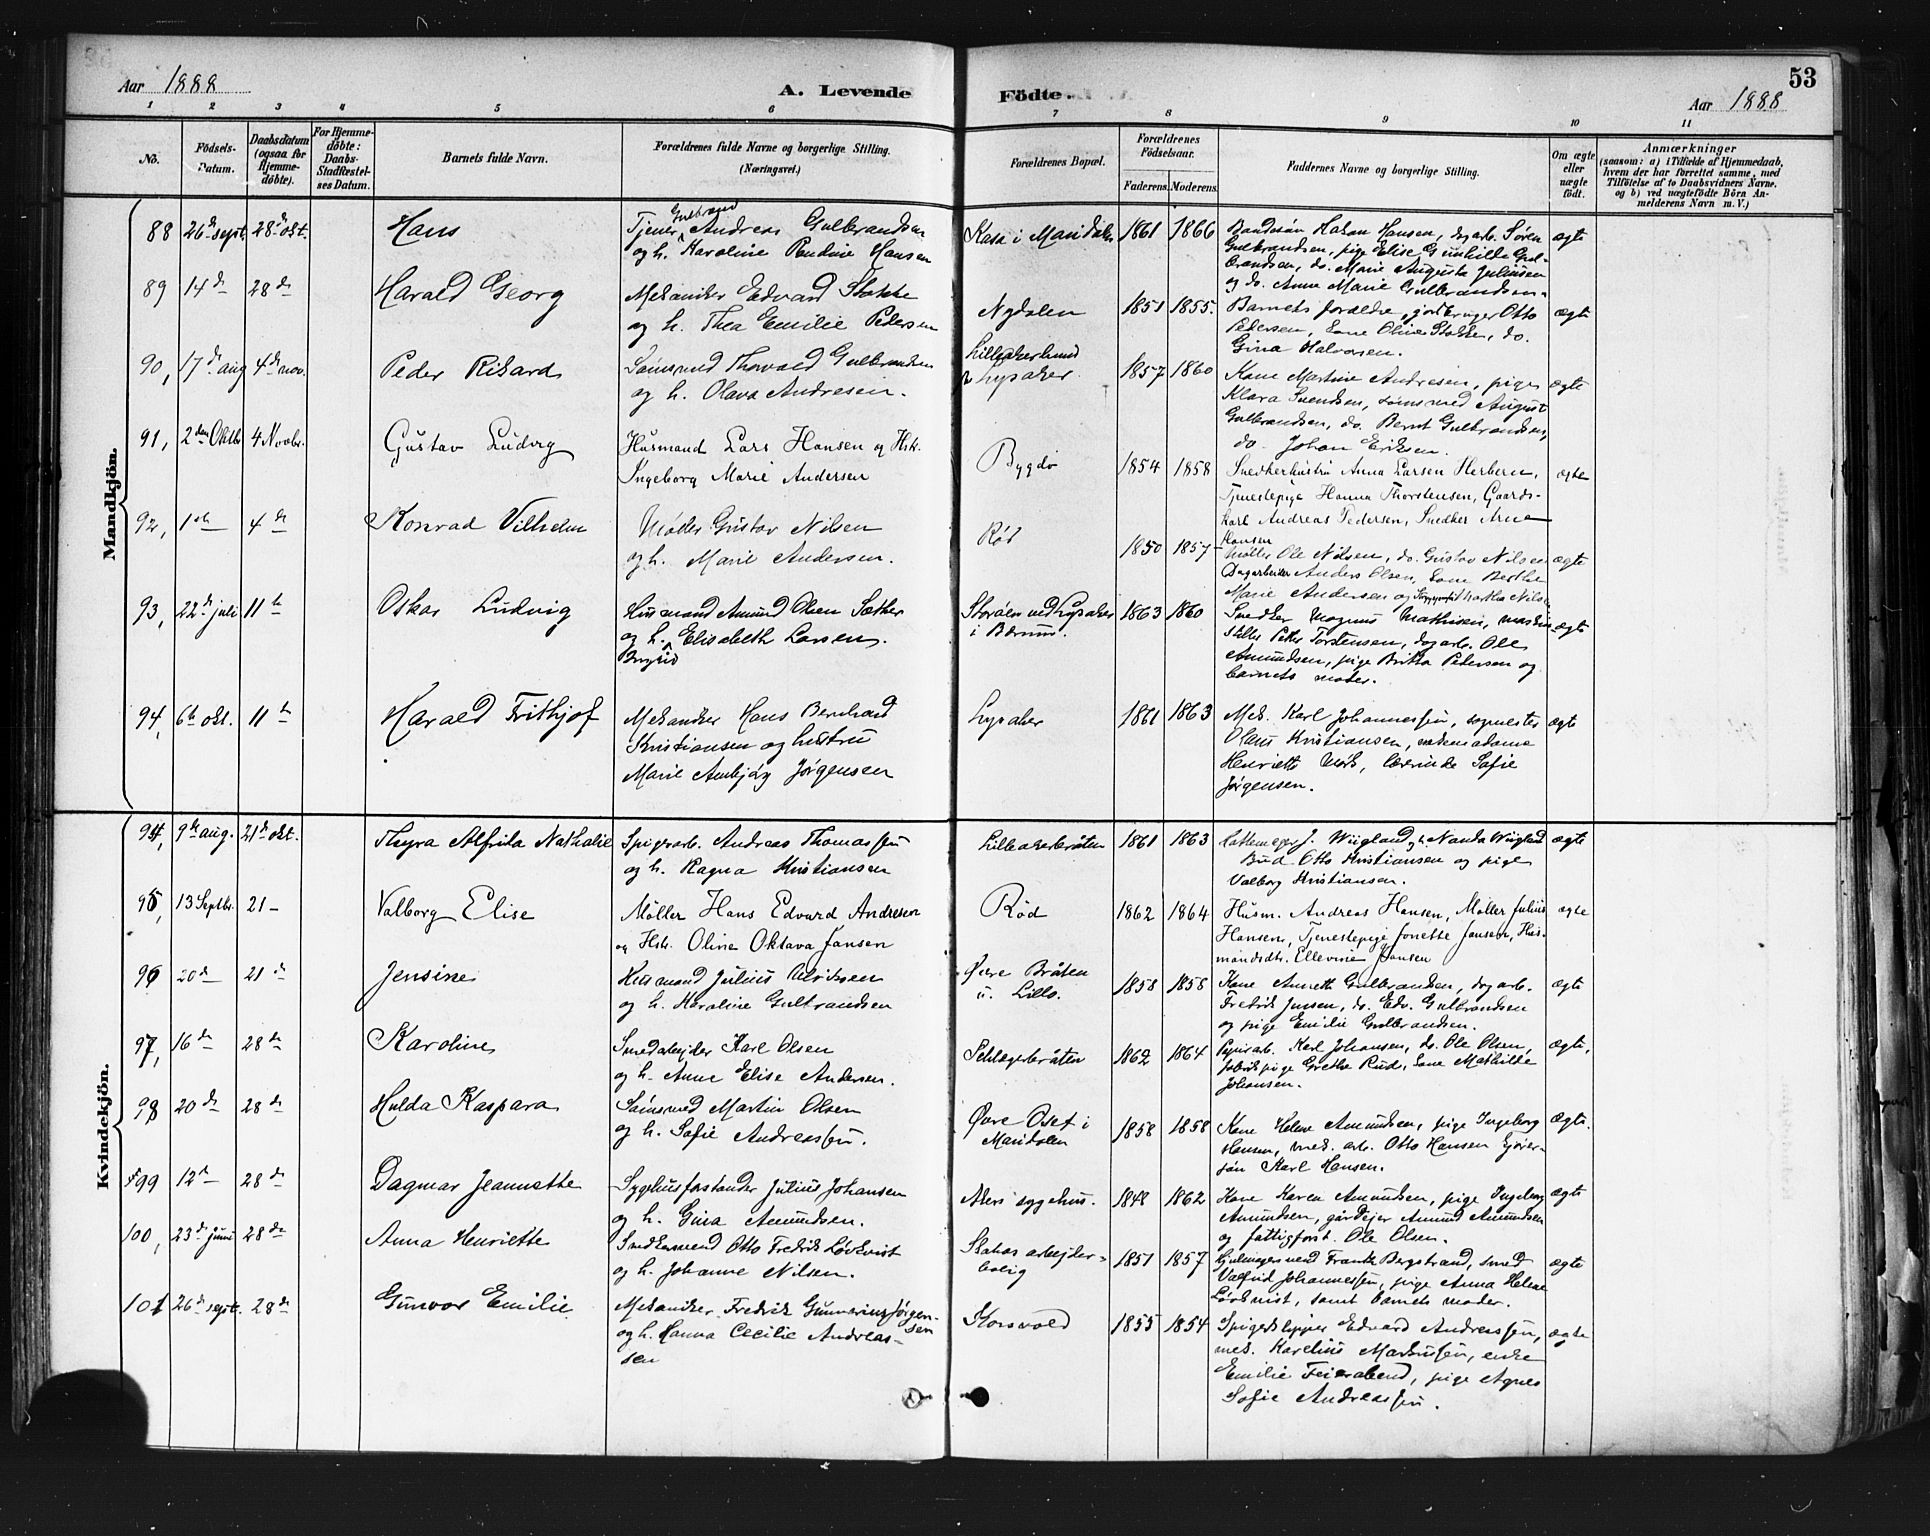 Aar 1888
A. Levende
Födte.
53
Aar 1888
1 2 3 4 5 6 7 8 9 10 11
No.
Födsels-
Datum.
Daabsdatum
(ogsaa for
Hjemme-
döbte).
For Hjemme-
döbte:
Daabs-
Stadfæstel-
ses Datum.
Barnets fulde Navn.
Forældrenes fulde Navne og borgerlige Stilling.
(Næringsvei.)
Forældrenes Bopæl.
Forældrenes
Födselsaar.
Faderens. Moderens.
Faddernes Navne og borgerlige Stilling.
Om ægte
eller
uægte
födt.
Anmærkninger
(saasom: a) i Tilfælde af Hjemmedaab,
hvem der har forrettet samme, med
Tilföielse af to Daabsvidners Navne,
og b) ved uægtefödte Börn An-
melderens Navn m. V.)
Mandkjön.
88 26de sept. 28de okt. Hans
Gulbrand
Tjener Andreas Gulbrandsen
og h. Karoline Hansen
Kasa i Maridalen 1861 1866
Hakon Hansen, dagarb. Søren
Gulbrandsen, pige Elise Gunhilde Gul-
brandsen, do. Marie Augusta Juliusen
og do. Anne Marie Gulbrandsen.
ægte
89 14de 28de Harald Georg
Mekaniker Edvard Stokke
og h. Thea Emilie Pedersen
Nydalen 1851 1855.
Barnets forældre, jordbruger Otto
Pedersen, Kone Oline Stokke, do.
Gina Halvorsen.
ægte
90, 17de aug 4de nov. Peder Rikard
Sømsmed Thorvald Gulbrandsen
og h. Olava Andresen.
Lilleakerlund
v. Lysaker. 1857 1860
Kone Martine Andresen, pige
Klara Svendsen, sømsmed August
Gulbrandsen, do. Bernt Gulbrandsen,
do. Johan Eriksen.
ægte
91, 2den Oktbr 4 Novbr. Gustav Ludvig
Husmand Lars Hansen og Hst.
Ingeborg Marie Andersen
Bygdø 1854 1858
Snedkerhustru Anna Larsen Herbern,
Tjenestepige Hanna Thorstensen, Gaards-
karl Andreas Pedersen, Snedker Arne
Hansen
ægte
92, 1ste 4de Konrad Vilhelm
Møller Gustav Nilsen
og h. Marie Andersen.
Rød 1850 1857
Møller Ole Nilsen, do. Gustav Nilsen
Dagarbeider Anders Olsen, Kone Berthe
Marie Andersen og Martha Nilsen
ægte
93, 22de juli 11te Oskar Ludvig
Husmand Amund Olsen Sæther
og h. Elisabeth Larsen.
Ingrid
Storøen ved Lysaker
i Bærum. 1863 1860
Snedker Magnus Mathisen, maskin-
stiller Peter Torstensen, dagarb. Ole
Amundsen, pige Britta Pedersen og
barnets moder.
ægte
94, 6te okt. 11te Harald Frithjof
Mekaniker Hans Bernhard
Kristiansen og hustru
Marie Ambjør Jørgensen
Lysaker 1861 1863
Mek. Karl Johannessen, sagmester
Olaus Kristiansen,
Henriette Mørk, lærerinde Sofie
Jørgensen.
ægte
Kvindekjön.
94, 9de aug. 21de okt. Thyra Alfrida Nathalie
Spigerarb. Andreas Thomassen
og h. Ragna Kristiansen
Lilleakerbråten 1861 1863
J. Wiigland, Nanda Wiigland
Bud Otto Kristiansen og pige
Valborg Kristiansen.
ægte
95, 13 Septbr. 21 - Valborg Elise
Møller Hans Edvard Andresen
og Hst. Oline Oktava Jansen
Rød 1862 1864
Husm. Andreas Hansen, Møller Julius
Hansen, Tjenestepige Jonette Jansen, Hus-
mandsdtr. Ellevine Jansen
ægte
96 20de 21de Jensine
Husmand Julius
og h. Karoline Gulbrandsen
Øvre Bråten
u. Lills. 1858 1858
Kone Annette Gulbrandsen, dagarb.
Fredrik Jensen, do. Edv. Gulbrandsen
og pige Emilie Gulbrandsen.
ægte
97, 16de 28de Karoline
Smedarbeider Karl Olsen
og h. Anne Elise Andersen.
1862 1864
Papirarb. Karl Johansen, do. Ole Olsen,
fabrikpige Grethe Rud, Kone Mathilde
Johansen.
ægte,
98 20de 28de Hulda Kaspara
Sømsmed Martin Olsen
og h. Sofie Andreassen.
Øvre Oset i
Maridalen 1858 1858
Kone Helene Amundsen, pige Ingeborg
Hansen, mek. arb. Otto Hansen
Karl Hansen.
ægte.
99 12te 28de Dagmar Jeannette
Sygehusforstander Julius Johansen
og h. Gina Amundsen.
Akers sygehus. 1848 1862
Kone Karen Amundsen, pige Ingeborg
Amundsen, gårdejer Amund Amundsen
og fattigforst. Ole Olsen.
ægte
100, 23de juni 28de Anna Henriette
Snedkersvend Otto Fredrik Løvkvist
og h. Johanne Nilsen.
arbejder-
bolig 1851 1857
Hjulmagersvend Frantz Bergstrand, smed
Valfrid Johannessen, pige Anna Helene
Løvkvist, samt barnets moder.
ægte
101 26de sept. 28de Gunvor Emilie
Mekaniker Fredrik Gunnerius Jørgen-
sen
og h. Hanna Cecilie Andreas-
sen
Korsvold 1855 1854
Spigerklipper Edvard Andreassen,
mek. Karelius Markussen, enke
Emilie Feierabend, pige Agnes
Sofie Andreassen.
ægte